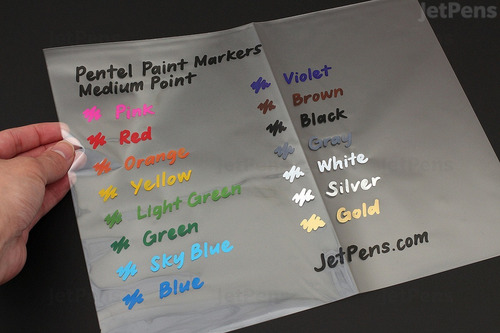 JetPens
Pentel Paint Markers
Medium Point
Pink
Red
Orange
Yellow
Light Green
Green
Sky Blue
Blue
Violet
Brown
Black
Gray
White
Silver
Gold
JetPens.com